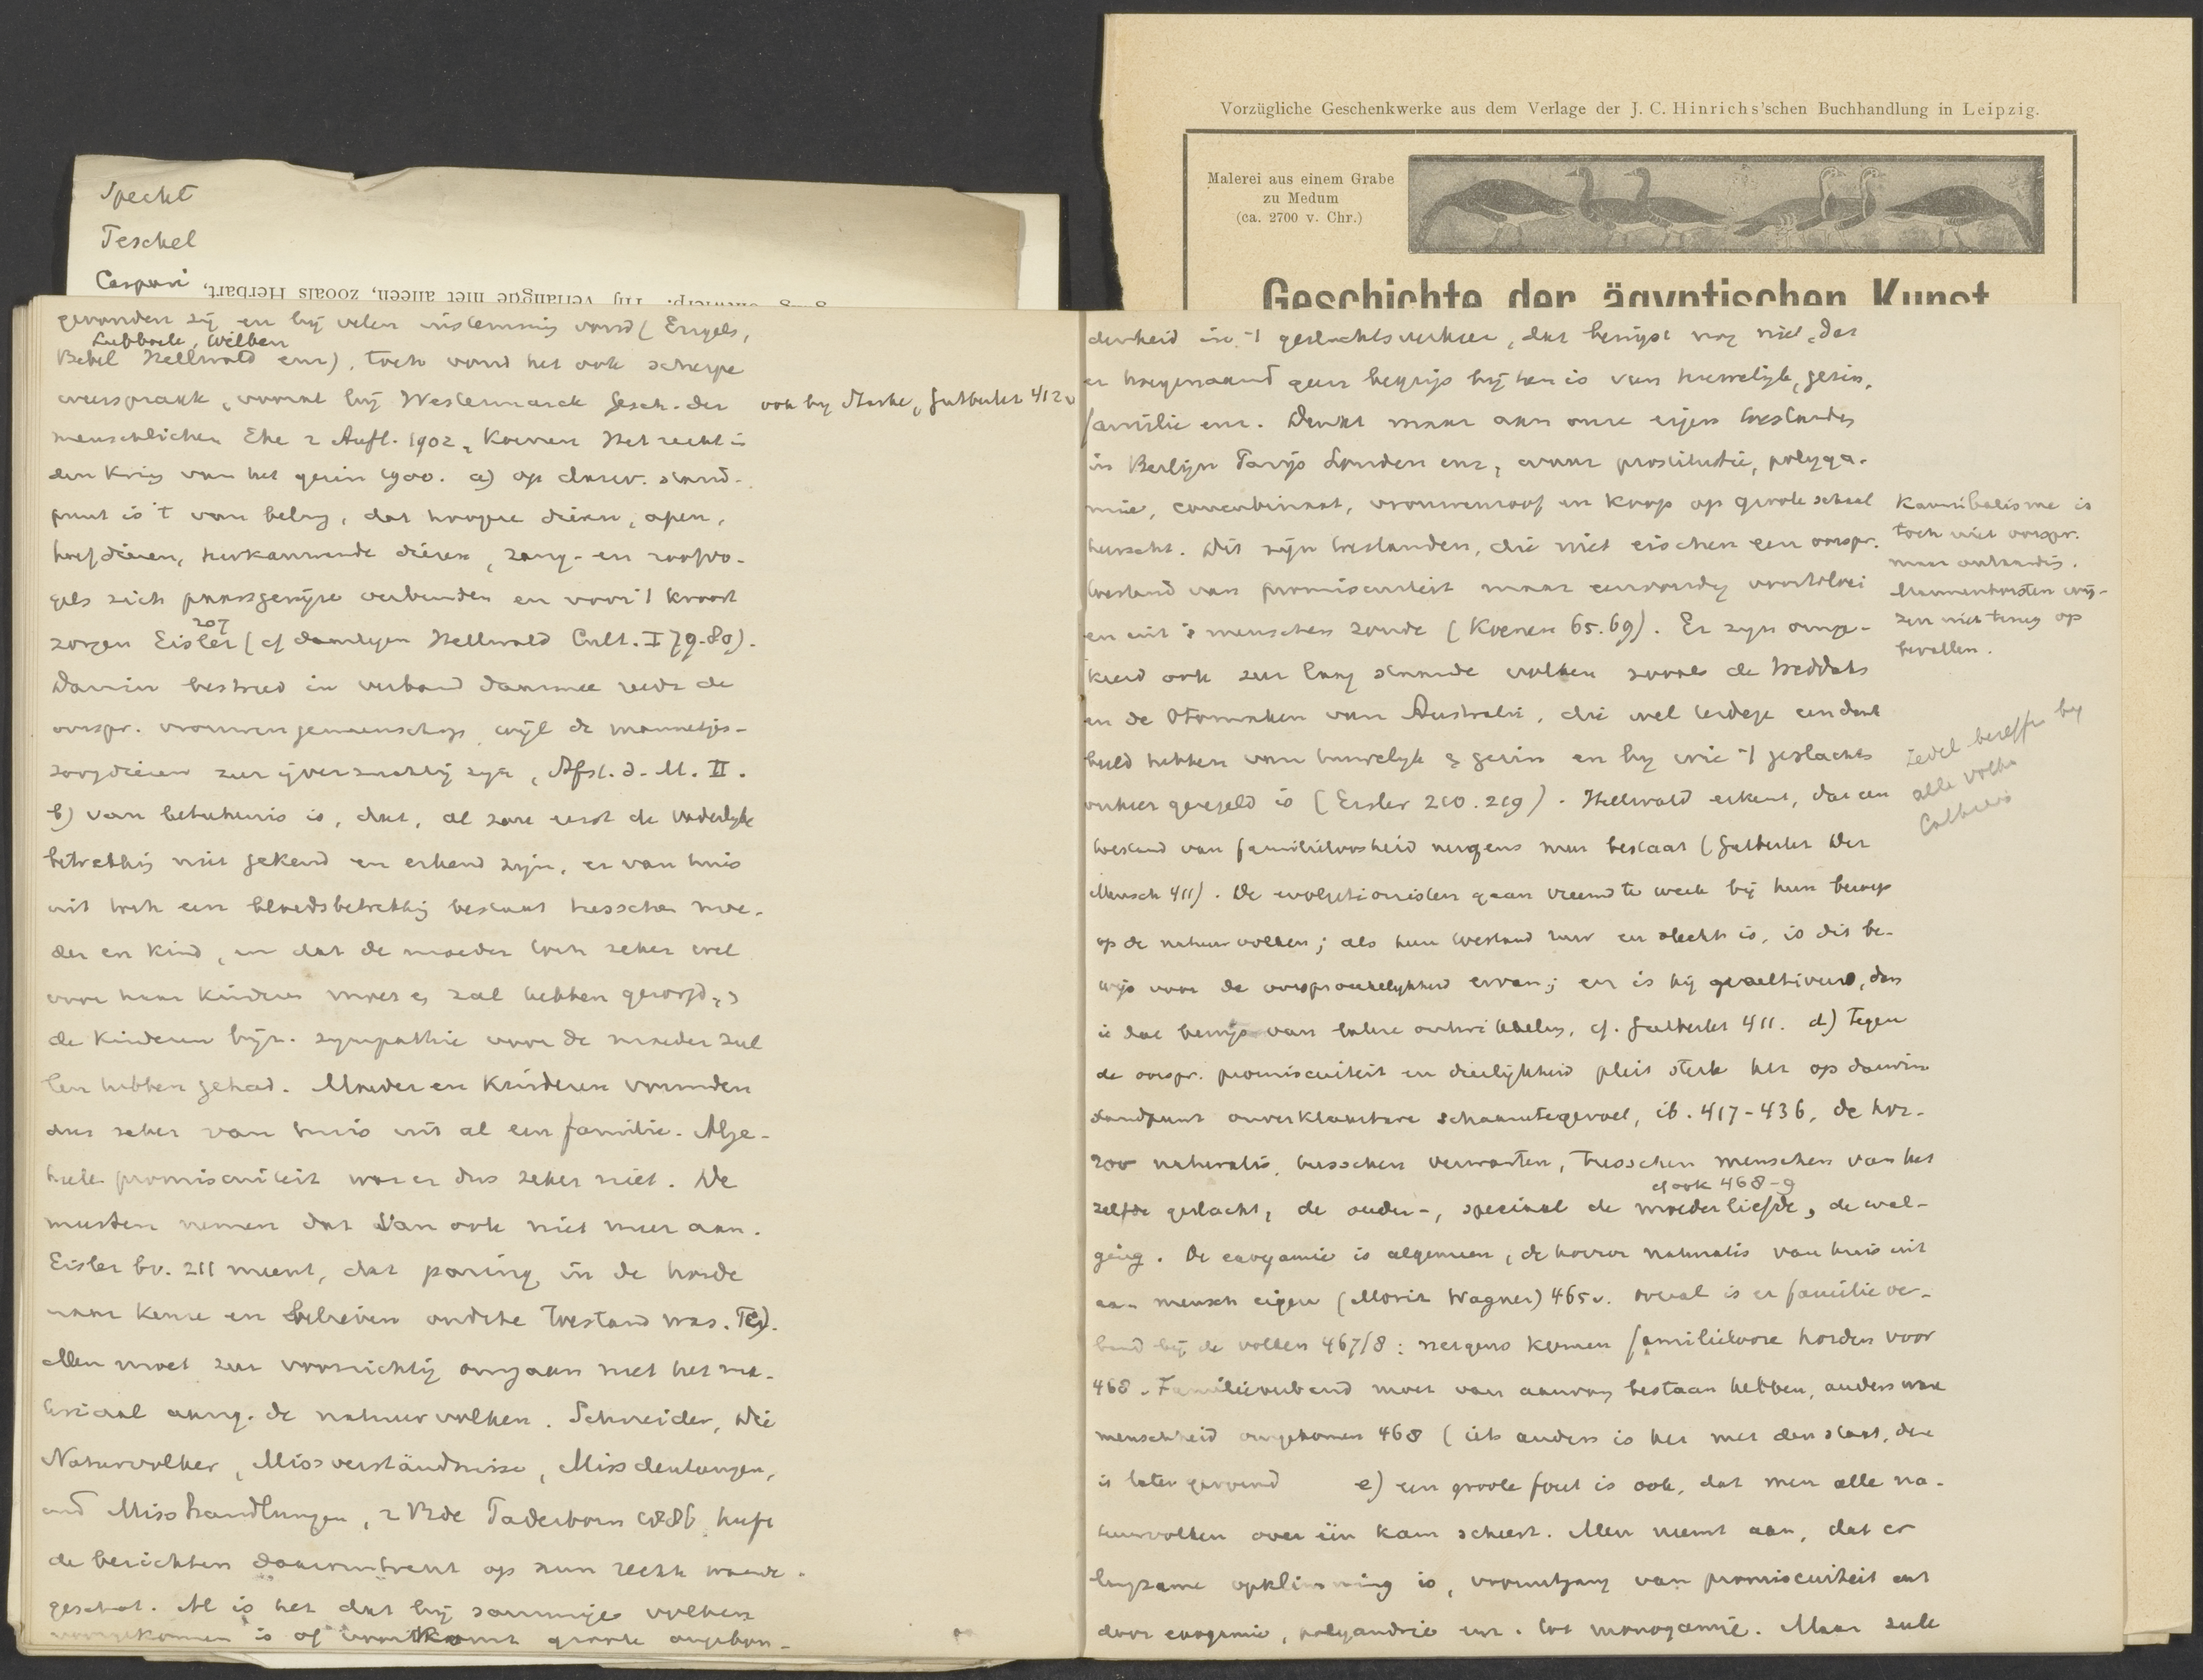 Specht
Teschel
Caspari
Vorzügliche Geschenkwerke aus dem Verlage der J. C. Hinrichs'schen Buchhandlung in Leipzig.
Malerei aus einem Grabe
zu Medum
(ca. 2700 v. Chr.)
Geschichte der ägyptischen Kunst
gevonden zij en bij velen instemming vond (Engels,
Lubbock, Wilken
Bebel Hellwald enz), toch vond het ook scherpe
weerspraak, vooral bij Westermarck Gesch. der
ook by Starke, Gutberlet 412 v
menschlichen Ehe 2 Aufl. 1902, Koenen Het recht in
den kring van het gezin 1900. a) op darw. stand-
punt is 't van belang, dat hoogere dieren, apen,
hoefdieren, herkauwende dieren, zang- en roofvo-
gels zich paarsgewijze verbinden en voor 't kroost
zorgen Eisler 207 (cf daartegen Hellwald Cult. I 79-80).
Darwin bestreed in verband daarmee reeds de
oorspr. vrouwengemeenschap, wijl de mannetjes-
zoogdieren zeer ijverzuchtig zijn, Afst. d. M. II.
b) van beteekenis is, dat, al zou eerst de vaderlijke
betrekking niet gekend en erkend zijn, er van huis
uit toch een bloedsbetrekking bestaat tusschen moe-
der en kind, en dat de moeder toch zeker wel
voor haar kinderen moet zal hebben gezorgd,
de kinderen bijz. sympathie voor de moeder zul
len hebben gehad. Moeder en kinderen vormden
dus zeker van huis uit al een familie. Alge-
heele promiscuiteit was er dus zeker niet. De
meesten nemen dat dan ook niet meer aan.
Eisler bv. 211 meent, dat paring in de horde
naar keuze en believen oudste toestand was. c)
Men moet zeer voorzichtig omgaan met het ma-
teriaal aang. de natuurvolken. Schneider, Die
Naturvölker, Missverständnisse, Missdeutungen,
und Misshandlungen, 2 Bde Paderborn 1886 heeft
de berichten daaromtrent op hun rechte waarde
geschat. Al is het dat bij sommige volken
voorgekomen is of voorkomt groote ongebon-
denheid in 't geslachtsverkeer, dat bewijst nog niet, dat
er hoegenaamd geen begrip bij hen is van huwelijk, gezin,
familie enz. Denkt maar aan onze eigen toestanden
in Berlijn Parijs Londen enz, waar prostitutie, polyga-
mie, concubinaat, vrouwenroof en koop op groote schaal
heerscht. Dit zijn toestanden, die niet eischen een oorspr.
toestand van promiscuiteit maar eenvoudig voortvloei
en uit 's menschen zonde (Koenen 65.69). Er zijn omge-
keerd ook zeer laag staande volken zooals de Weddahs
en de Otomaken van Australie, die wel terdege een denk
beeld hebben van huwelijk & gezin en bij wie 't geslachts
verkeer geregeld is (Eisler 210.219). Hellwald erkent, dat een
toestand van familieloosheid nergens meer bestaat (Gutberlet Der
Mensch 411). De evolutionisten gaan vreemd te werk bij hun beroep
op de natuurvolken; als hun toestand ruw en slecht is, is dit be-
wijs voor de oorspronkelijkheid ervan; en is hij gecultiveerd, dan
is dat bewijs van latere ontwikkeling, cf. Gutberlet 411. d) Tegen
de oorspr. promiscuiteit en dierlijkheid pleit sterk het op darwin
standpunt onverklaarbare schaamtegevoel, ib. 417-436, de hor-
ror naturalis tusschen verwanten, tusschen menschen van het
cf ook 468-9
zelfde geslacht, de ouder-, speciaal de moederliefde, de wel-
ging. De exogamie is algemeen, de horror naturalis van huis uit
aan mensch eigen (Moriz Wagner) 465 v. overal is er familiever-
band bij de volken 467/8: nergens komen familielooze horden voor
468. Familieverband moet van aanvang bestaan hebben, anders ware
menschheid omgekomen 468 (iets anders is het met den staat, die
is later gevormd e) een groote fout is ook, dat men alle na-
tuurvolken over één kam scheert. Men neemt aan, dat er
langzame opklimming is, vooruitgang van promiscuiteit enz
door exogamie, polyandrie enz. tot monogamie. Maar zulk
Kannibalisme is
toch niet oorspr.
maar ontaarding.
zen niet terug op
bevallen.
Zedel. beseffen by
alle volken
Cathrein